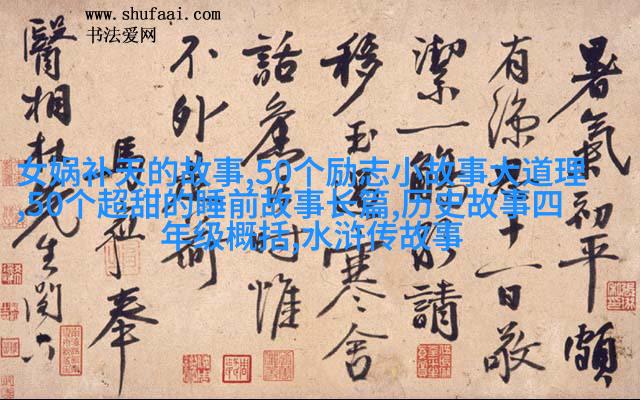 www.shufaai.com
书法爱网
女娲补天的故事,50个励志小故事大道理
,50个超甜的睡前故事长篇,历史故事四
年级概括,水浒传故事
暑氣初平頗
有涼十一日敬
潔一觴請
移玉寒舍
話舊時惟
不外荷
馬奉
醫相杜先生閣下